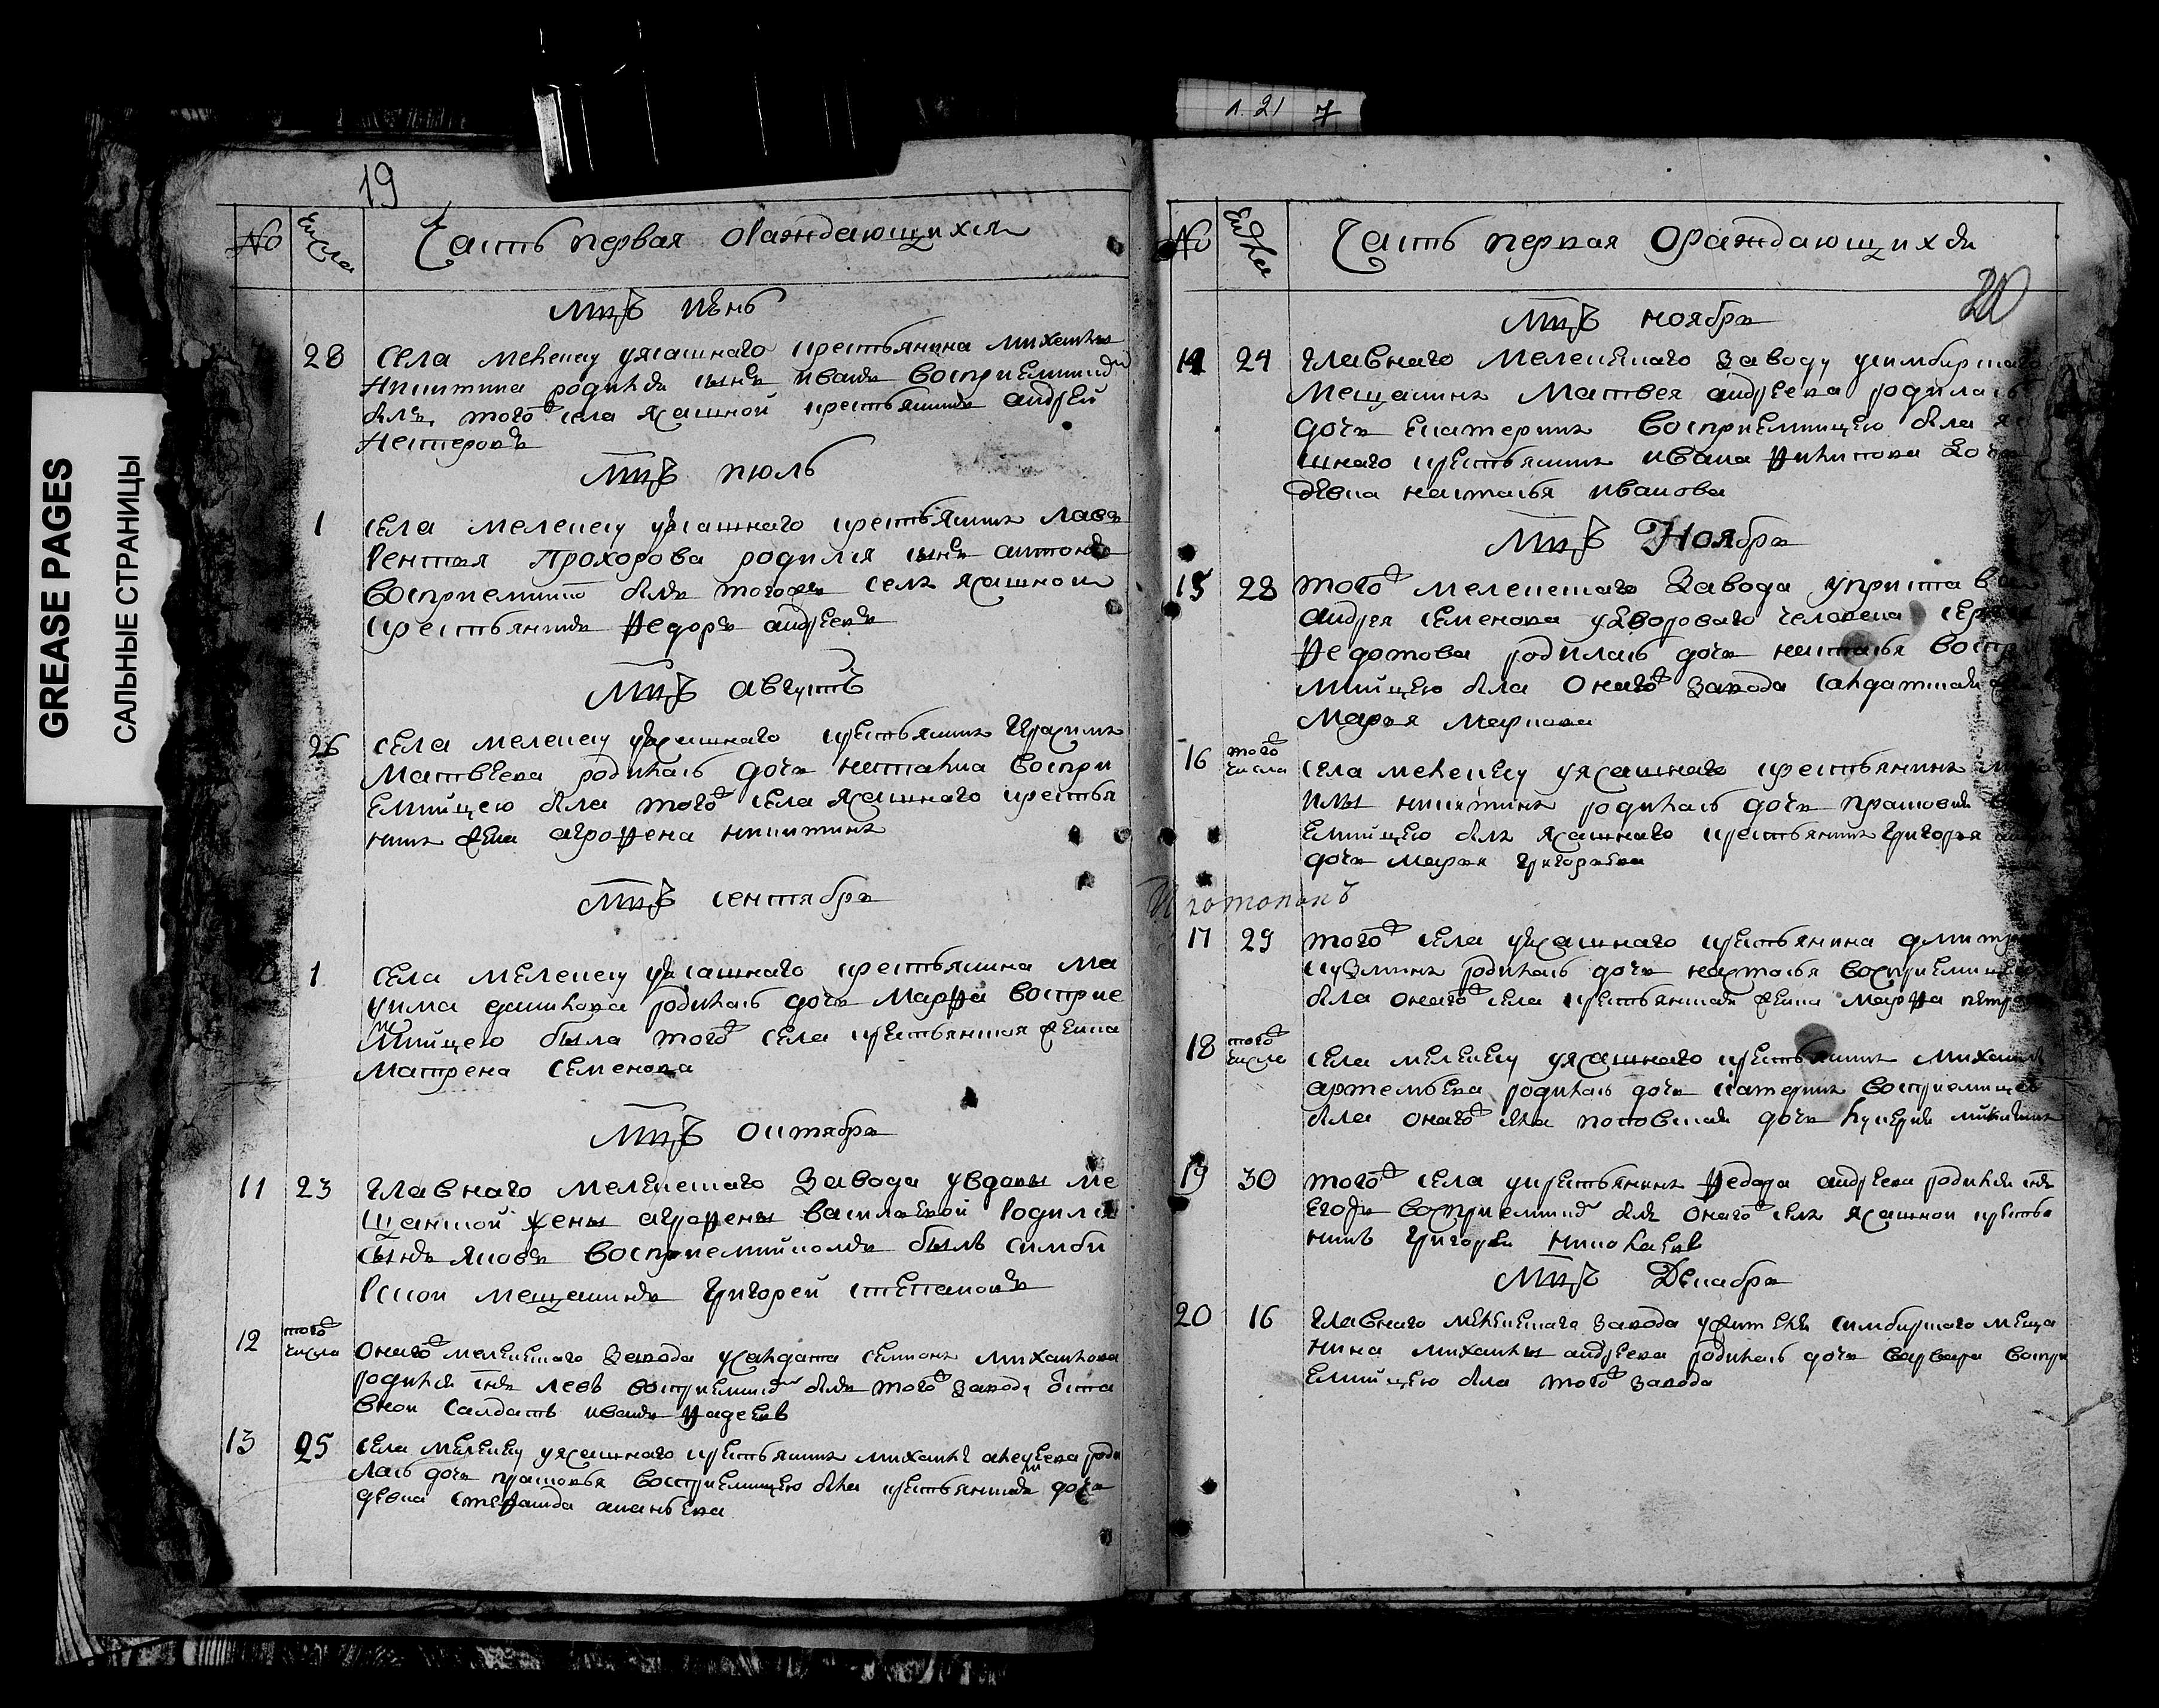 GREASE PAGES
САЛЬНЫЕ СТРАНИЦЫ
19
No Числа Часть первая ораждающихся
Мцъ июнь
28 села мелекесу уясашнаго крестьянина михаилы
никитина родился сынъ иванъ восприемником
былъ того села ясашной крестьянинъ андрей
нестеровъ
Мцъ июль
1 села мелекесу уясашнаго крестьянина лавъ
рентья прохорова родился сынъ антонъ
восприемнико былъ тогожъ села ясашной
крестьянинъ Федоръ андреевъ
Мцъ августъ
26 села мелекесу уясашнаго крестьянина герасима
матвеева родилась дочь наталиа воспри
емницею была того села ясашнаго крестья
нина жена аграфена никитина
Мцъ сентябра
1 села мелекесу уясашнаго крестьянина ма
родилась дочь марфа восприе
мницею была того села крестьянская жена
матрена семенова
Мцъ октября
11 23 главнаго мелекескаго завода увдовы ме
щанской жены аграфены василевой родился
сынъ яковъ восприемникомъ былъ симби
рскои мещанинъ григорей степановъ
12 того числа онаго мелекескаго завода усалдата семиона михаилова
родился снъ левъ восприемником былъ того завода
вной салдатъ иванъ Фадеевъ
13 25 села мелекесу уясашнаго крестьянина михаилы алексеева роди
лась дочь прасковья восприемницею была крестьянская дочь
девка стефанида ананьева
1. 21 7
No Числа Часть первая ораждающихся
20
Мцъ ноября
14 24 главнаго мелекескаго заводу усимбирскаго
мещанина матвея андреева родилась
дочь екатерина восприемницею была яса
шнаго крестьянина ивана дочь
девка настасья иванова
Мцъ Ноября
15 28 того мелекескаго завода упристава
андрея семенова удвороваго человека
Федотова родилась дочь настасья
мницею была онаго завода салдатская
марья маркова
16 того числа села мелекесу уясашнаго крестьянина
илы никитина родилась дочь прасковия
емницею была ясашнаго крестьянина григорья
дочь марья григорьева
Протопопъ
17 29 того села уясашнаго крестьянина дмитр
кузмина родилась дочь настасья восприемнице
была онаго села крестьянская жена марфа петр
18 того числа села мелекесу уясашнаго крестьянина михаилы
артемьева родилась дочь катерина восприемнице
была онаго села поповская дочь
19 30 того села укрестьянина Федора андреева родился снъ
егоръ восприемником былъ онаго села ясашной крестья
нинъ григорей николаевъ
Мцъ Декабря
20 16 главнаго мелекескаго завода ужителя симбирскаго меща
нина михаилы андреева родилась дочь варвара воспри
емницею была того завода